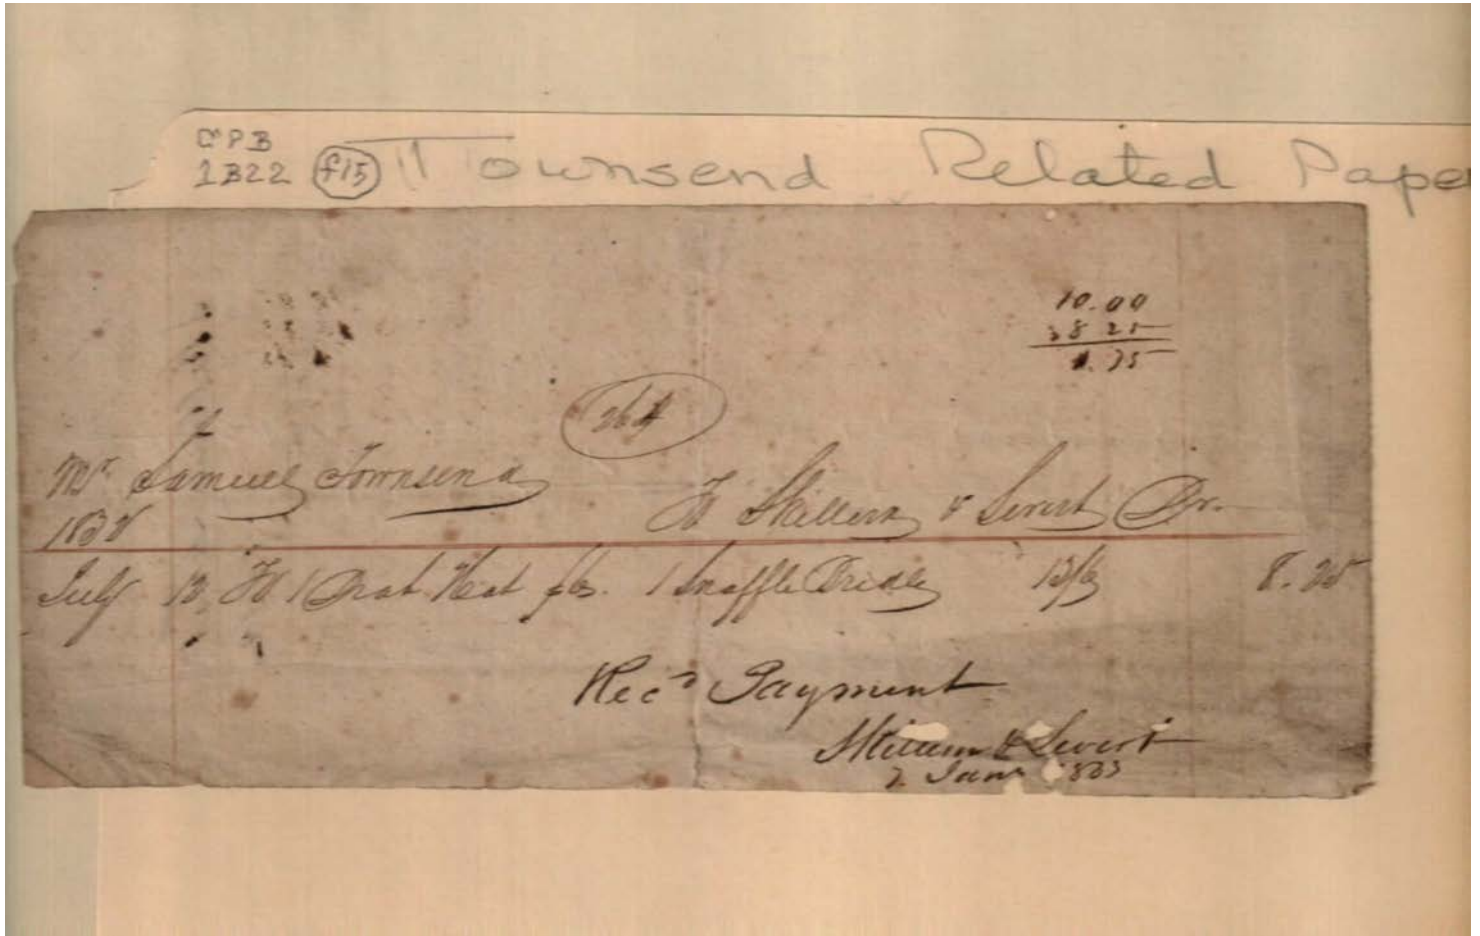 CPB
1B22 f15 Townsend Related Pape
10.00
8 25
1.75
264
Mr Samuel Townsend
1832 To Skillern & Sevort Dr.
July 13 To 1 Hat $6. 1 Snaffle Bridle 13/6 8.25
Recd Payment
Skillern & Sevort
2 Jany 1833